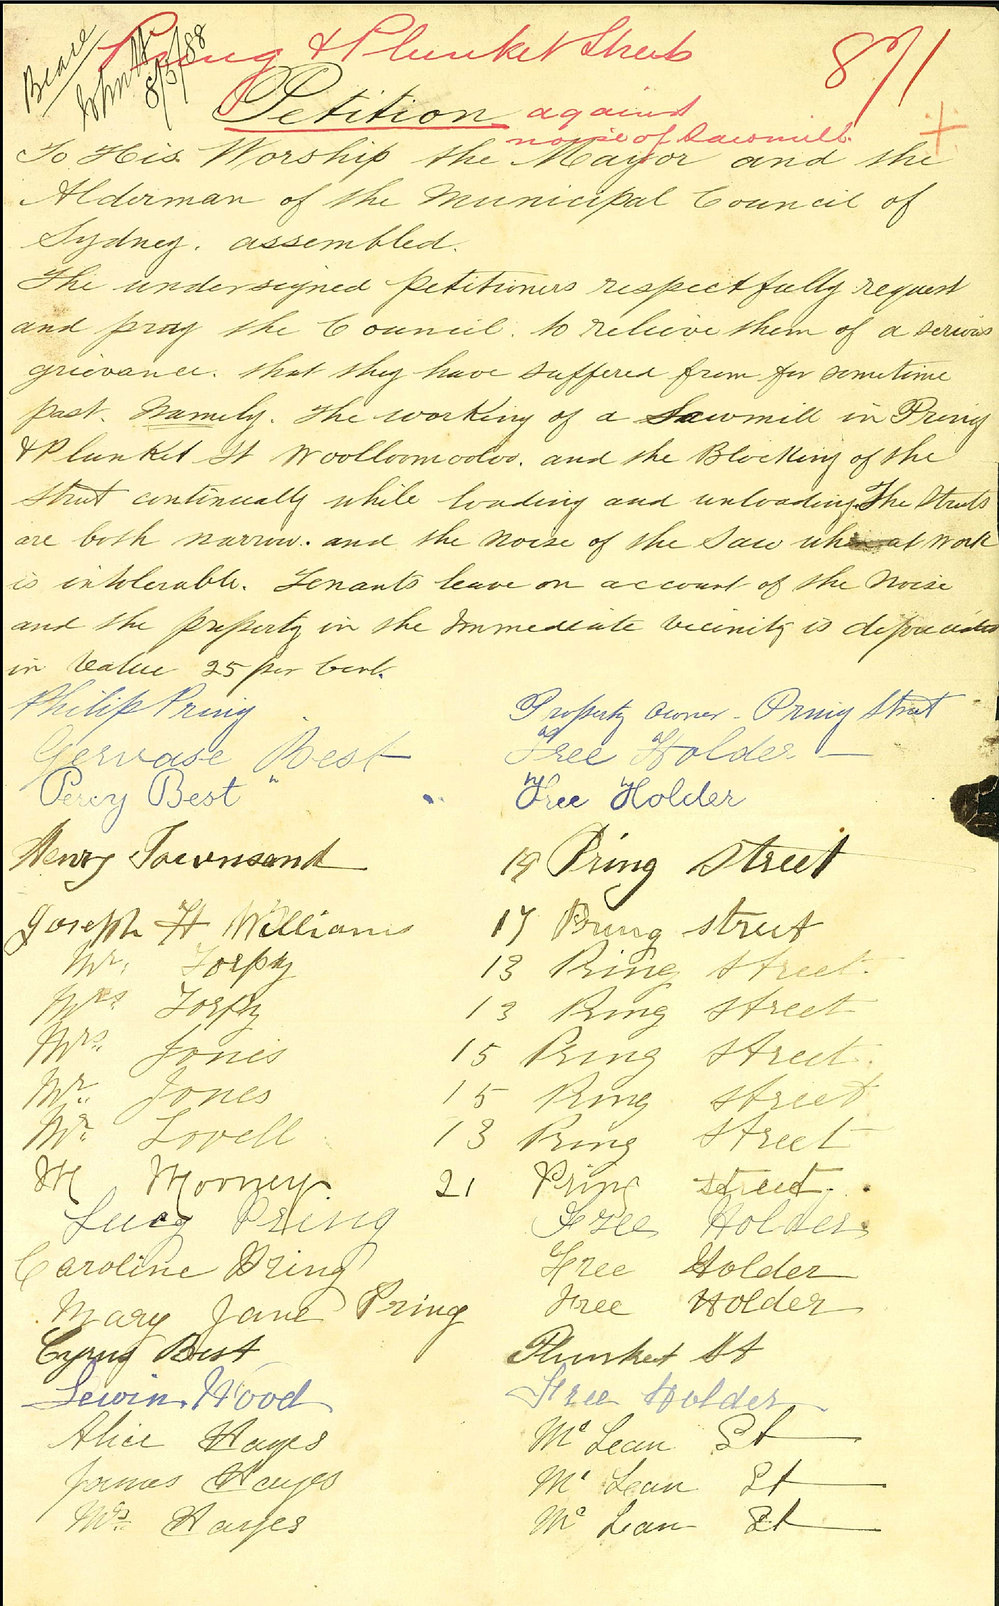 Pring & Plunket Streets
871
Beare
John H
8/5/88
Petition against
noise of Sawmill.
To His Worship the Mayor and the
Alderman of the Municipal Council of
Sydney. assembled.
The undersigned petitioners respectfully request
and pray the Council. to relieve them of a serious
grievance. that they have suffered from for sometime
past. Namely. The working of a Sawmill in Pring
& Plunket St Woolloomooloo. and the Blocking of the
Street continually while loading and unloading. The Streets
are both narrow. and the Noise of the Saw when at work
is intolerable. Tenants leave on account of the Noise
and the property in the Immediate vicinity is depreciated
in Value 25 per Cent.
Philip Pring Property Owner - Pring Street
Gervase Best Free Holder
Percy Best " Free Holder
Henry Townsend 19 Pring Street
Joseph H Williams 17 Pring street
Mr. Torpy 13 Pring Street.
Mrs Torpy 13 Pring Street
Mrs. Jones 15 Pring Street.
Mr. Jones 15 Pring Street
Mr. Lovell 13 Pring Street
M Mooney. 21 Pring street.
Lucy Pring Free Holder.
Caroline Pring Free Holder
Mary Jane Pring Free Holder
Cyrus Best Plunket St
Lewin Wood Free Holder
Alice Hayes Mc Lean St
James Hayes Mc Lean St
Mrs. Hayes Mc Lean St